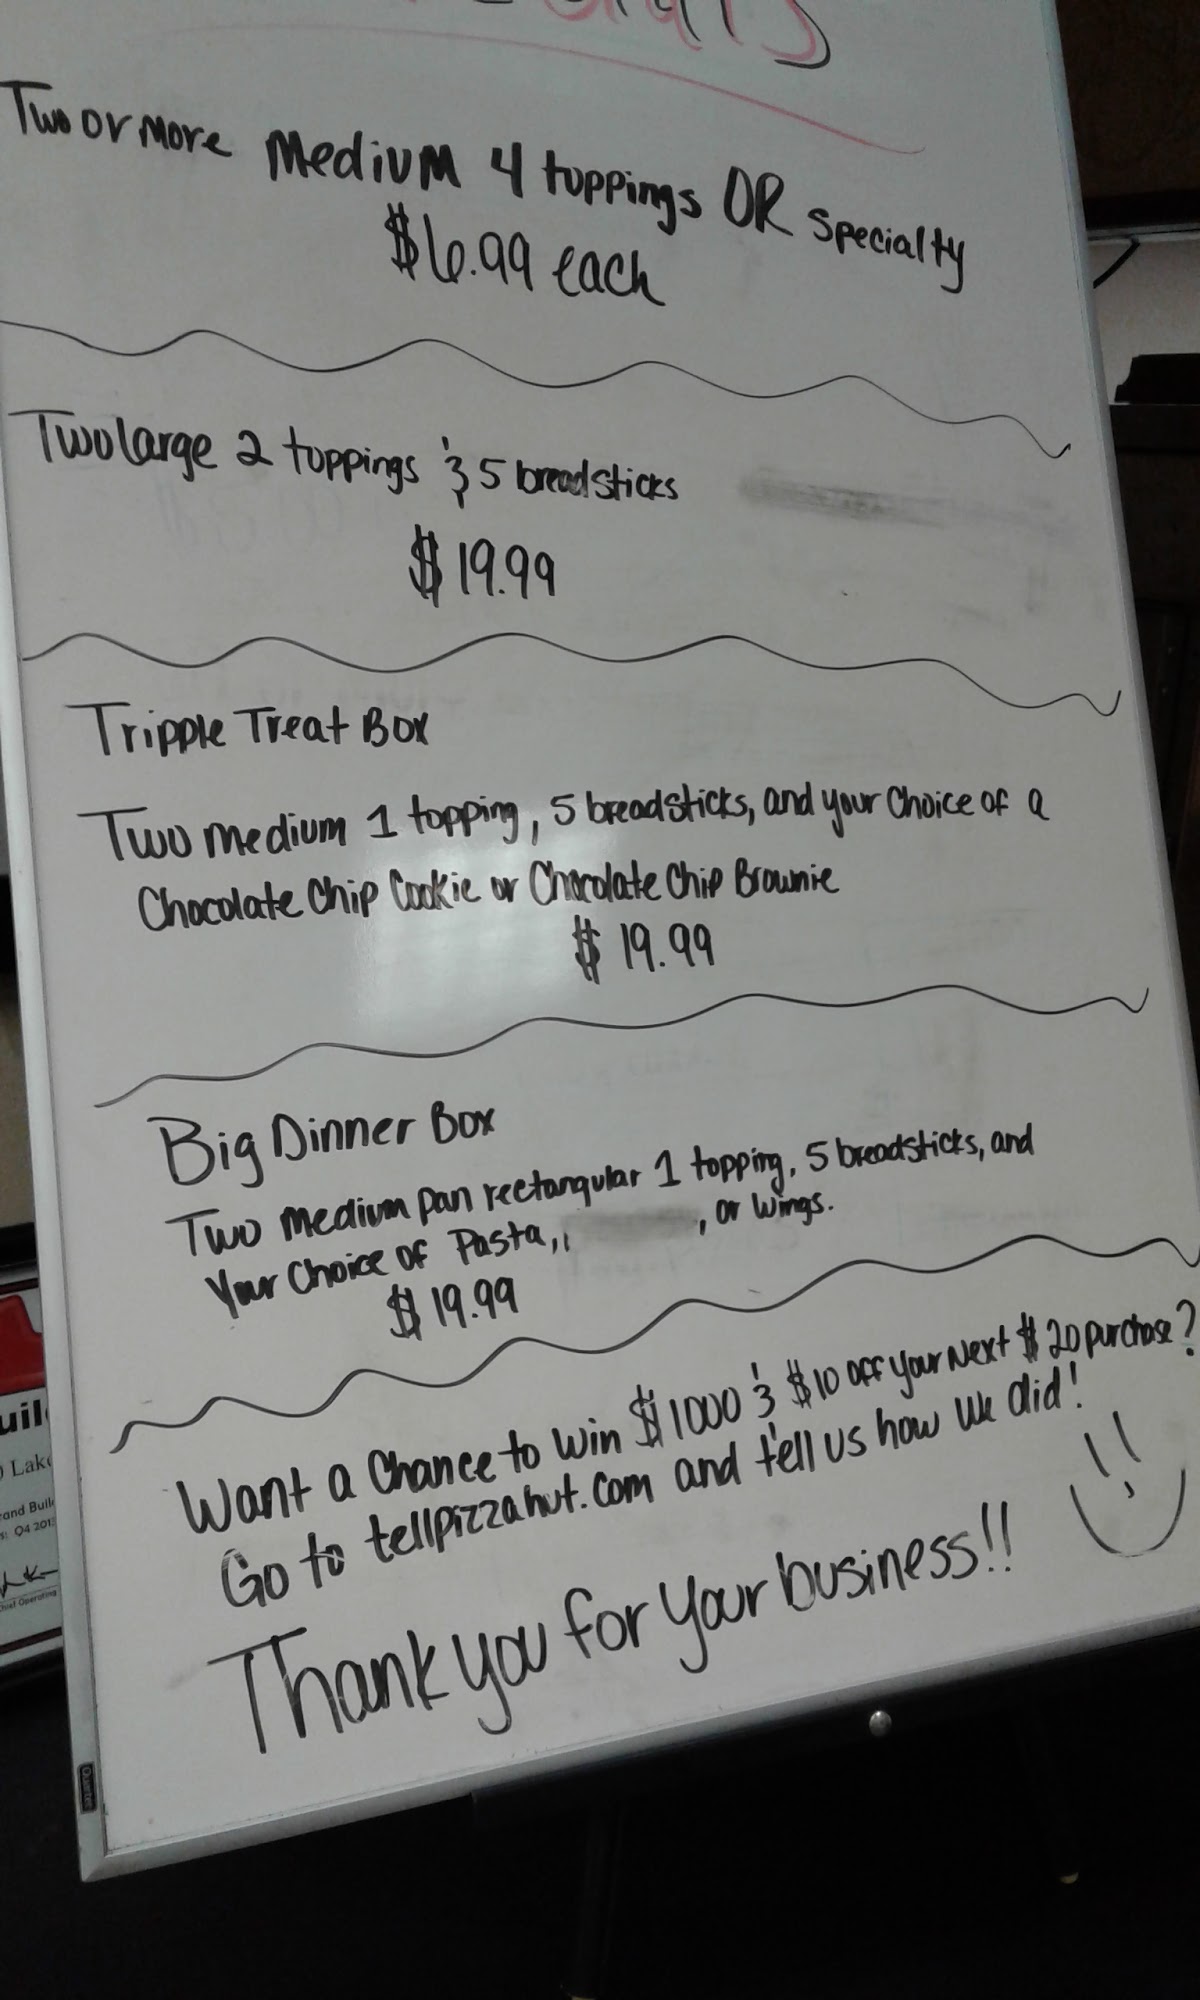 Two or more Medium 4 toppings OR specialty
$6.99 each
Two large 2 toppings & 5 breadsticks
$19.99
Tripple Treat Box
Two medium 1 topping, 5 breadsticks, and your choice of a
Chocolate Chip Cookie or Chocolate Chip Brownie
$19.99
Big Dinner Box
Two medium pan rectangular 1 topping, 5 breadsticks, and
your choice of Pasta, , or wings.
$19.99
Want a chance to win $1000 & $10 off your next $20 purchase?
Go to tellpizzahut.com and tell us how we did!
Thank you for your business!!
Quartet
Lake
Chief Operating